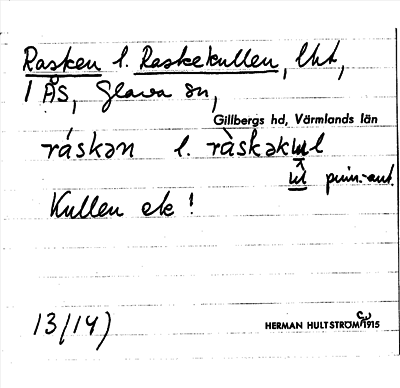 Rasken l. Raskekullen, lht,
1 ÅS, Glava sn,
Gillbergs hd, Värmlands län
ráskən l. ràskəkɯl
ɯl prim.-ant.
Kullen etc!
13/14)
HERMAN HULTSTRÖM 1915